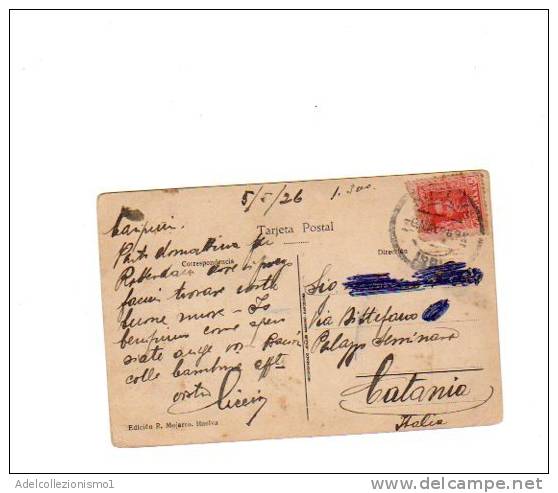 5/5/26
1.300.
Carissimi.
Tarjeta Postal
Correspondencia
Dirección
Parto domattina per
Rotterdam dove vi prego
farmi trovare vostre
buone nuove - Io
benissimo come spero
siate anche voi Bacii
colle bambine aff.
vostro
Via Di Stefano
Palazzo Seminara
Catania
Italia
Edición R. Mojarro. Huelva
Adelcollezionismo1
delcampe.net